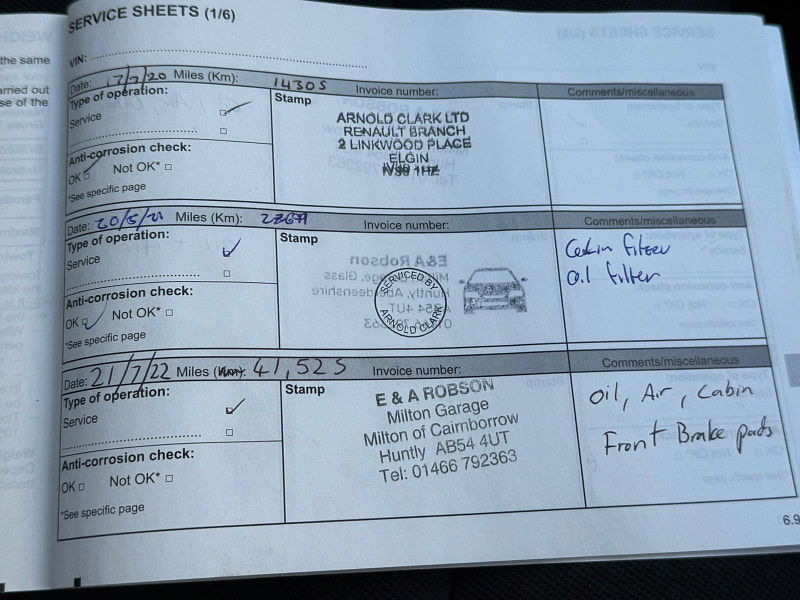 SERVICE SHEETS (1/6)
VIN:
the same
Date: 17/7/20 Miles (Km): 14305 Invoice number: Comments/miscellaneous
Type of operation:
Service
Stamp
ARNOLD CLARK LTD
RENAULT BRANCH
2 LINKWOOD PLACE
ELGIN
IV30 1HZ
Anti-corrosion check:
OK Not OK*
*See specific page
Date: 20/5/21 Miles (Km): Invoice number: Comments/miscellaneous
Type of operation:
Service
Stamp
SERVICED BY
ARNOLD CLARK
Cabin filter
Oil filter
Anti-corrosion check:
OK Not OK*
*See specific page
Date: 21/7/22 Miles (Km): 41,525 Invoice number: Comments/miscellaneous
Type of operation:
Service
Stamp
E & A ROBSON
Milton Garage
Milton of Cairnborrow
Huntly AB54 4UT
Tel: 01466 792363
Oil, Air, Cabin
Front Brake pads
Anti-corrosion check:
OK Not OK*
*See specific page
6.9